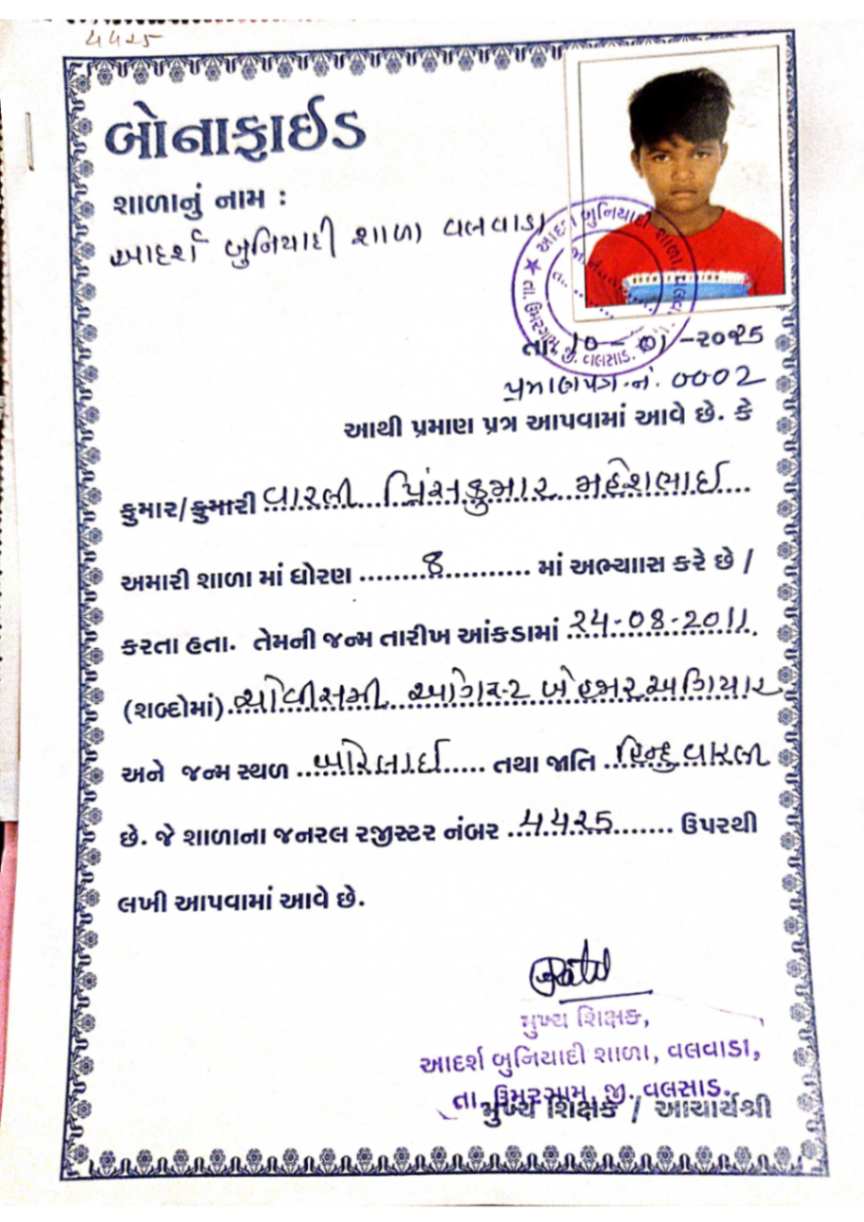 4425
બોનાફાઈડ
શાળાનું નામ :
આદર્શ બુનિયાદી શાળા વલવાડા
તા. 10-01-2025
પ્રમાણપત્ર.નં. 0002
આથી પ્રમાણ પત્ર આપવામાં આવે છે. કે
કુમાર/કુમારી વારલી પ્રિંસકુમાર મહેશભાઈ
અમારી શાળા માં ધોરણ ........8.......... માં અભ્યાાસ કરે છે /
કરતા હતા. તેમની જન્મ તારીખ આંકડામાં 24-08-2011
(શબ્દોમાં) ચોવીસમી ઓગસ્ટ બે હજાર અગિયાર
અને જન્મ સ્થળ ........... તથા જાતિ હિન્દુ વારલી
છે. જે શાળાના જનરલ રજીસ્ટર નંબર ...4425....... ઉપરથી
લખી આપવામાં આવે છે.
મુખ્ય શિક્ષક,
આદર્શ બુનિયાદી શાળા, વલવાડા,
તા. ઉમરગામ, જી. વલસાડ.
મુખ્ય શિક્ષક / આચાર્યશ્રી